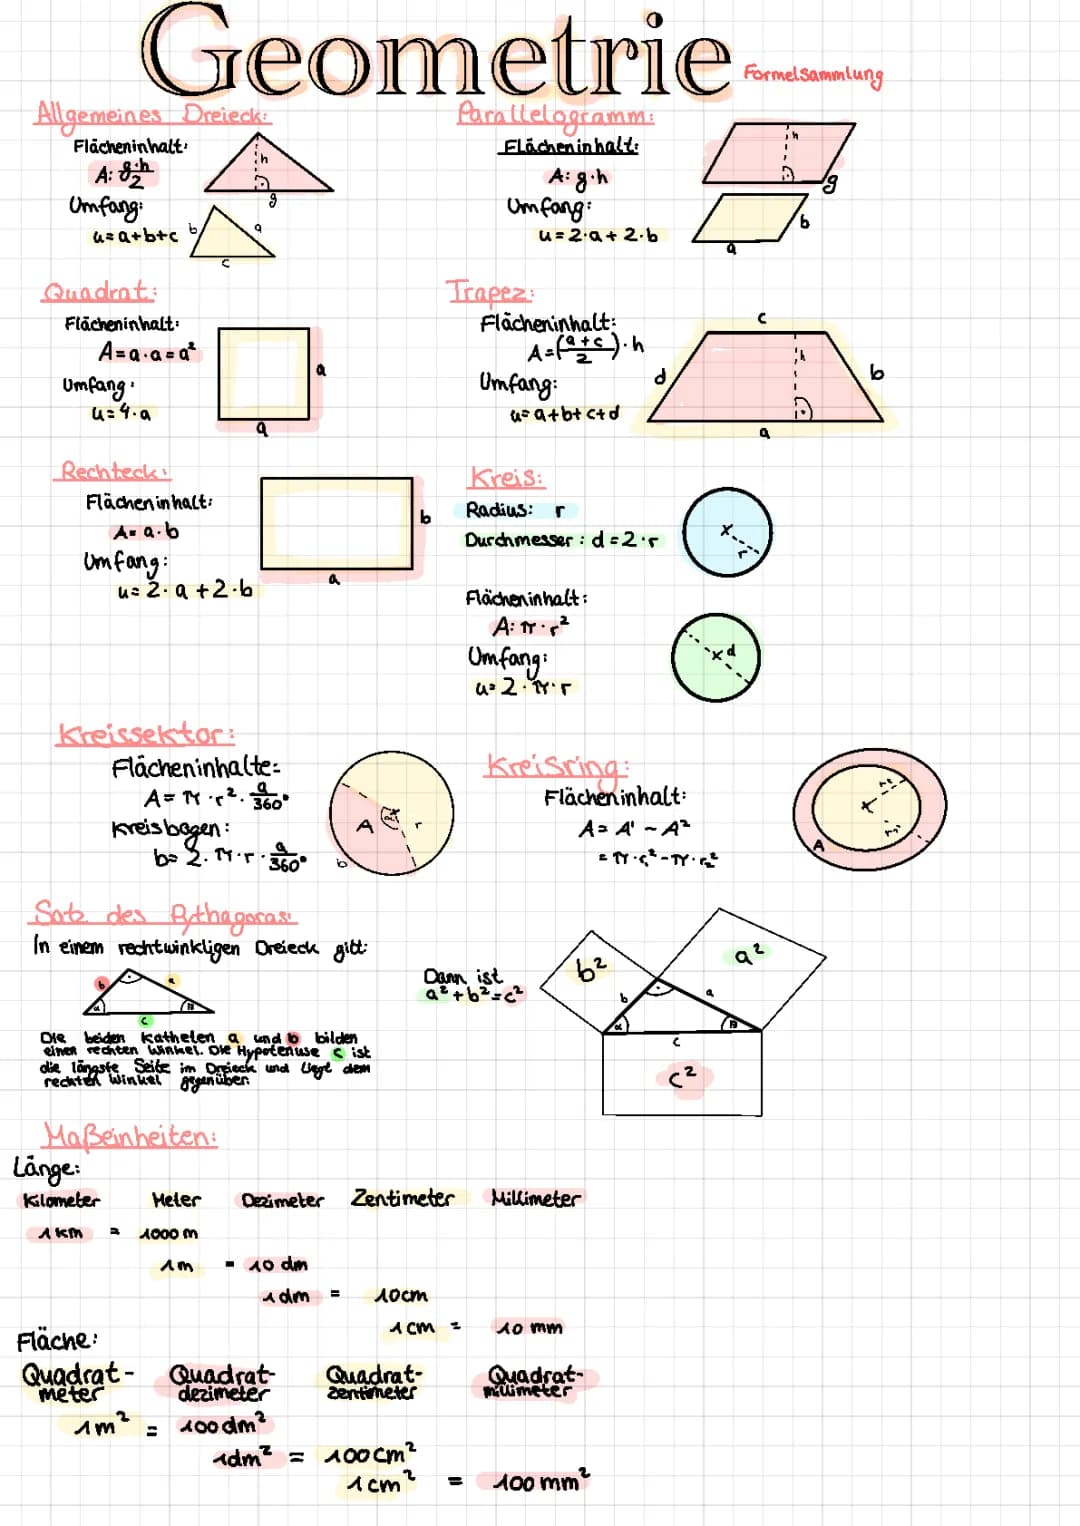 Geometrie
Formelsammlung
Allgemeines Dreieck:
Flächeninhalt:
A: g·h/2
Umfang:
u = a+b+c
h
g
b
a
c
Parallelogramm:
Flächeninhalt:
A: g·h
Umfang:
u = 2·a + 2·b
h
g
b
a
Quadrat:
Flächeninhalt:
A = a·a = a²
Umfang:
u = 4·a
a
a
Trapez:
Flächeninhalt:
A = (a+c/2)·h
Umfang:
u = a+b+c+d
c
d
h
b
a
Rechteck:
Flächeninhalt:
A = a·b
Umfang:
u = 2·a + 2·b
b
a
Kreis:
Radius: r
Durchmesser: d = 2·r
Flächeninhalt:
A: π·r²
Umfang:
u = 2·π·r
x
r
x d
Kreissektor:
Flächeninhalte:
A = π·r²·a/360°
Kreisbogen:
b = 2·π·r·a/360°
A
r
b
Kreisring:
Flächeninhalt:
A = A¹ - A²
= π·r₁² - π·r₂²
x
A
Satz des Pythagoras:
In einem rechtwinkligen Dreieck gilt:
b
a
α
B
c
Die beiden Katheten a und b bilden
einen rechten Winkel. Die Hypotenuse c ist
die längste Seite im Dreieck und liegt dem
rechten Winkel gegenüber.
Dann ist
a² + b² = c²
b²
a²
b
a
α
B
c
c²
Maßeinheiten:
Länge:
Kilometer Meter Dezimeter Zentimeter Millimeter
1 km = 1000 m
1 m = 10 dm
1 dm = 10cm
1 cm = 10 mm
Fläche:
Quadrat-
meter
Quadrat-
dezimeter
Quadrat-
zentimeter
Quadrat-
millimeter
1 m² = 100 dm²
1dm² = 100 cm²
1 cm² = 100 mm²